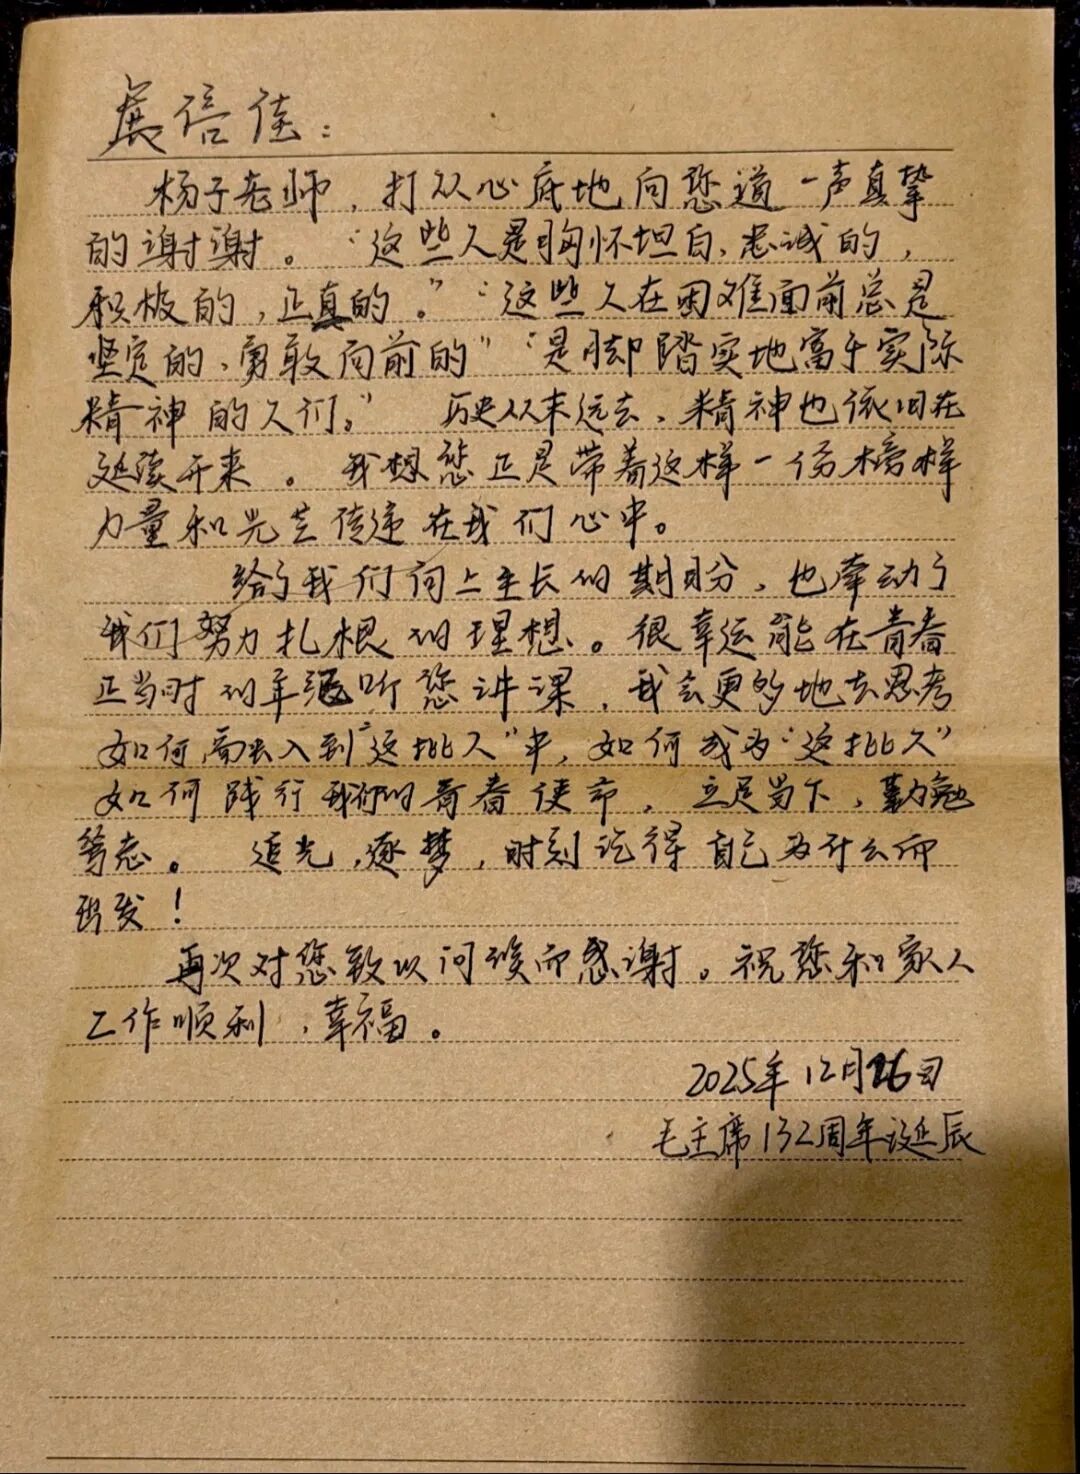 展信佳：
杨子老师，打从心底地向您道一声真挚
的谢谢。“这些人是胸怀坦白、忠诚的，
积极的，正真的。”“这些人在困难面前总是
坚定的、勇敢向前的”“是脚踏实地富于实际
精神的人们。” 历史从未远去，精神也依旧在
延续开来。我想您正是带着这样一份榜样
力量和光芒传递在我们心中。
给了我们向上生长的期盼，也牵动了
我们努力扎根的理想。很幸运能在青春
正当时的年纪听您讲课，我会更多地去思考
如何融入到“这批人”中，如何成为“这批人”
如何践行我们的青春使命，立足当下，勤勉
笃志。 追光，逐梦，时刻记得自己为什么而
出发！
再次对您致以问候而感谢。祝您和家人
工作顺利，幸福。
2025年12月26日
毛主席132周年诞辰